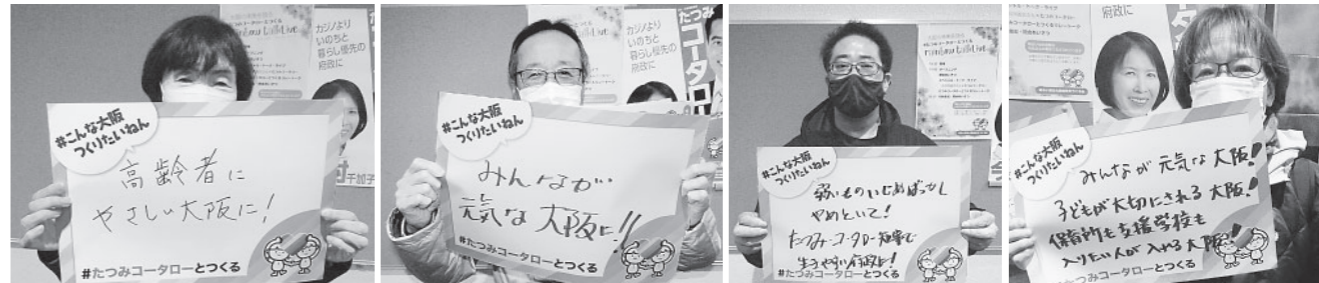 カジノより
いのちと
暮らし優先の
府政に
#こんな大阪
つくりたいねん
高齢者に
やさしい大阪に!
#たつみコータローとつくる
千加子
カジノより
いのちと
暮らし優先の
府政に
たつみ
コータロー
#こんな大阪
つくりたいねん
みんなが
元気な大阪に!!
#たつみコータローとつくる
#こんな大阪
つくりたいねん
弱いものいじめばっかし
やめといて!
たつみコータロー知事で
生きやすい府政に!
#たつみコータローとつくる
府政に
#こんな大阪
つくりたいねん
みんなが元気な大阪!
子どもが大切にされる大阪!
保育所も支援学校も
入りたい人が入れる大阪!
#たつみコータローとつくる